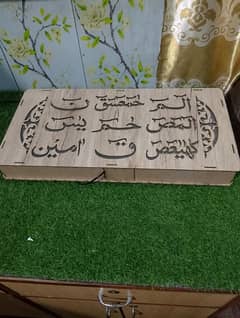 الٓمٓ حٓمٓعٓسٓقٓ نٓ
الٓمٓصٓ حٰمٓ يٰسٓ
كٓهٰيٰعٓصٓ قٓ اٰمين